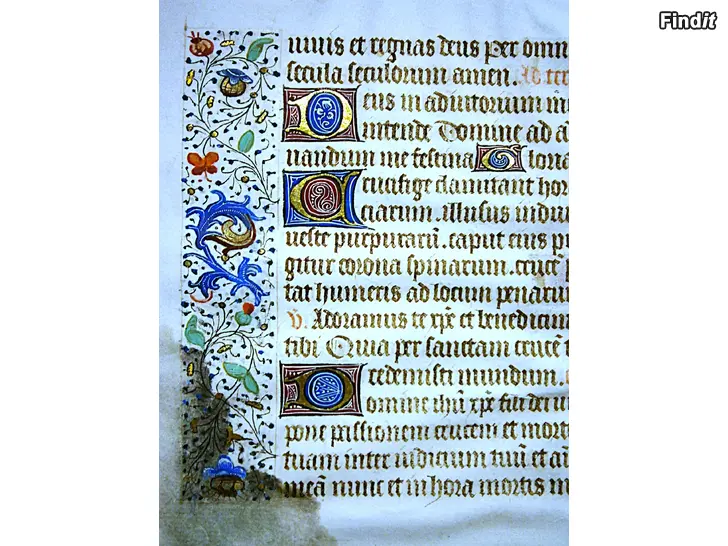 Findit
uiuis et regnas deus per omn
secula seculorum amen. Ad ter
Deus in adiutorium m
intende Domine ad a
uuandum me festina Gloria
Crucifige clamitant hor
ciarum. illusus indui
ueste purpuraru̅. caput eius pu
gitur corona spinarum. cruce̅ p
tat humeris ad locum penaru
V̅. Adoramus te xp̅e et benedicim
tibi Quia per sanctam cruce̅ t
redemisti mundum.
Domine ihu̅ xp̅e fili dei ui
pone passionem crucem et mort
tuam inter iudicium tuu̅ et ai̅
mea̅ nunc et in hora mortis m